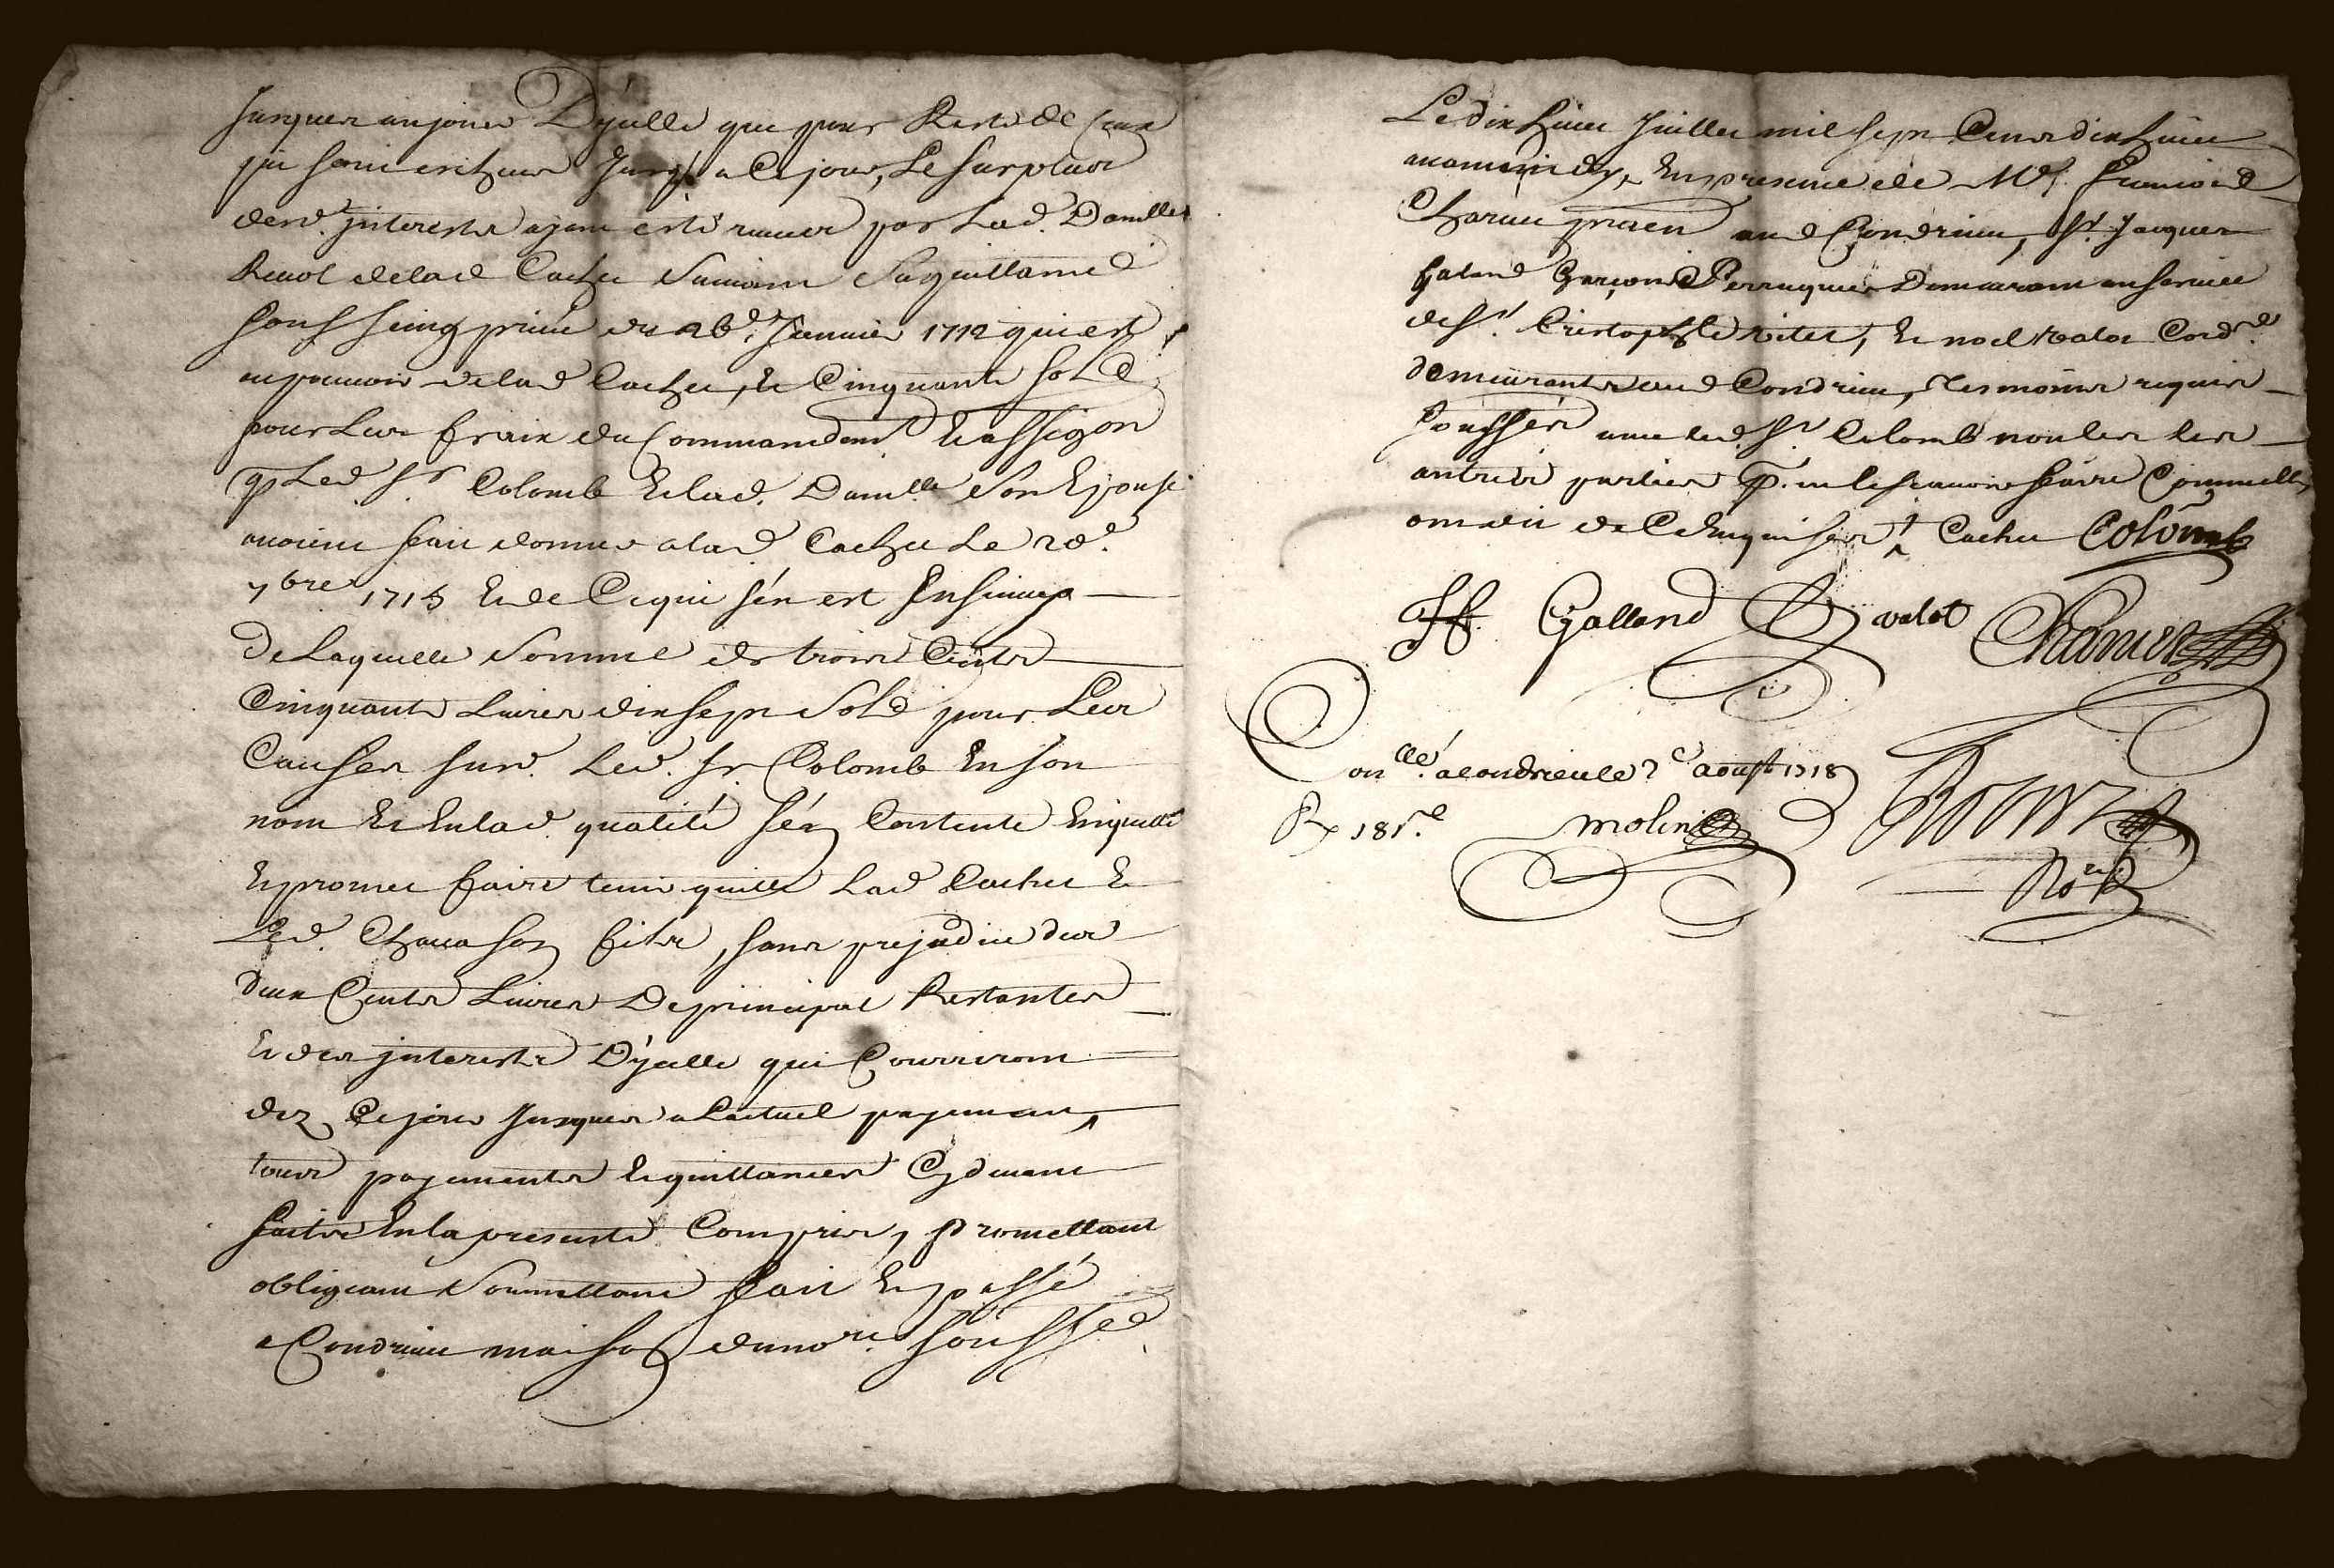 Jusques aujourd Dyselle que pour Reste de Ceux
qui sont escheus Jusq a Ce jour, Le surplus
desd. jnterests ayant esté receus par Lad. Damlle
de lad Cachet Suivant Sa quittance
soussseing privé du 26e. Janvier 1712 qui est
au pouvoir de lad Cachet, Et Cinquante sold
pour Les fraix du Commandemt. Et assigon
q Led Sr Colomb Et lad. Damlle Son Epouse
avoient fait donner a lad Cachet Le 20e.
7bre 1715 Et de Ce qui sen est Ensuivy
De Laquelle Somme de trois Cents
Cinquante Livres dix sept Sold pour Les
Causes susd. Led. Sr. Colomb En son
nom Et En lad. qualité sen Contente En quitte
Et promet faire tenir quitte Lad Cachet Et
Led. fils, sans prejudice des
deux Cents Livres De principal Restantes
Et des jnterests Dyselle qui Courriront
dez Ce jour Jusques a Lactuel payement,
tous payements Et quittances Cydevant
faits En la presente Compris, promettant
obligeant Soumettant fait Et passé
a Condrieu maison du nore. soussé
Le dix huict Juillet mil sept Cens dix huict
avant midy, En presence de Me. François
Charvet praen aud Condrieu, Sr. Jacques
Galand Garçon Perruquier Demeurant au service
de Sr. Cristophle, Et noel valot Cordr
demeurants aud Condrieu, tesmoins requis
soussés avec led. Sr Colomb non les
autres parties p. ne le scavoir faire Comme elles
ont dit de Ce Enquises Cachet Colomb
Galland valot
Conllé. a Condrieu le 2e aoust 1718
R 18s.d
molin
Nore